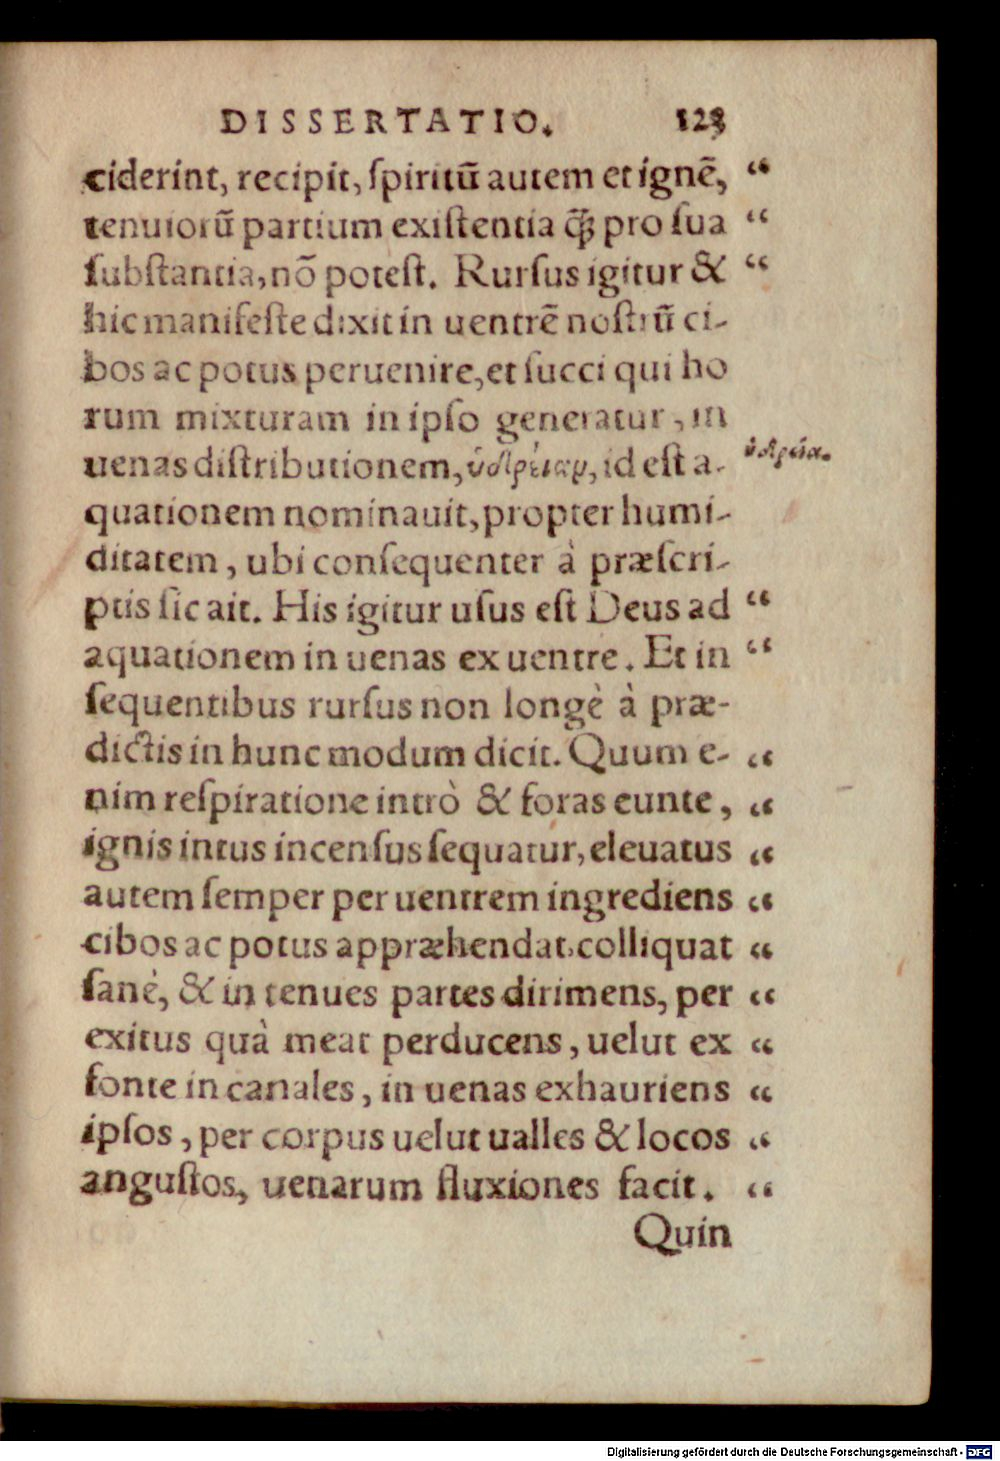 DISSERTATIO. 123
ciderint, recipit, ſpiritū autem et ignē, “
tenuiorū partium exiſtentia ꝗ̃ꝫ pro ſua “
ſubſtantia, nō poteſt. Rurſus igitur & “
hic manifeſte dixit in uentrē noſtrū ci-
bos ac potus peruenire, et ſucci qui ho
rum mixturam in ipſo generatur, in
uenas diſtributionem, ὑδρείαν, id eſt a- ὑδρεία.
quationem nominauit, propter humi-
ditatem, ubi conſequenter à præſcri-
ptis ſic ait. His igitur uſus eſt Deus ad “
aquationem in uenas ex uentre. Et in “
ſequentibus rurſus non longè à præ-
dictis in hunc modum dicit. Quum e- “
nim reſpiratione intrò & foras eunte, “
ignis intus incenſus ſequatur, eleuatus “
autem ſemper per uentrem ingrediens “
cibos ac potus appræhendat, colliquat “
ſanè, & in tenues partes dirimens, per “
exitus quà meat perducens, uelut ex “
fonte in canales, in uenas exhauriens “
ipſos, per corpus uelut ualles & locos “
anguſtos, uenarum fluxiones facit. “
Quin
Digitalisierung gefördert durch die Deutsche Forschungsgemeinschaft - DFG